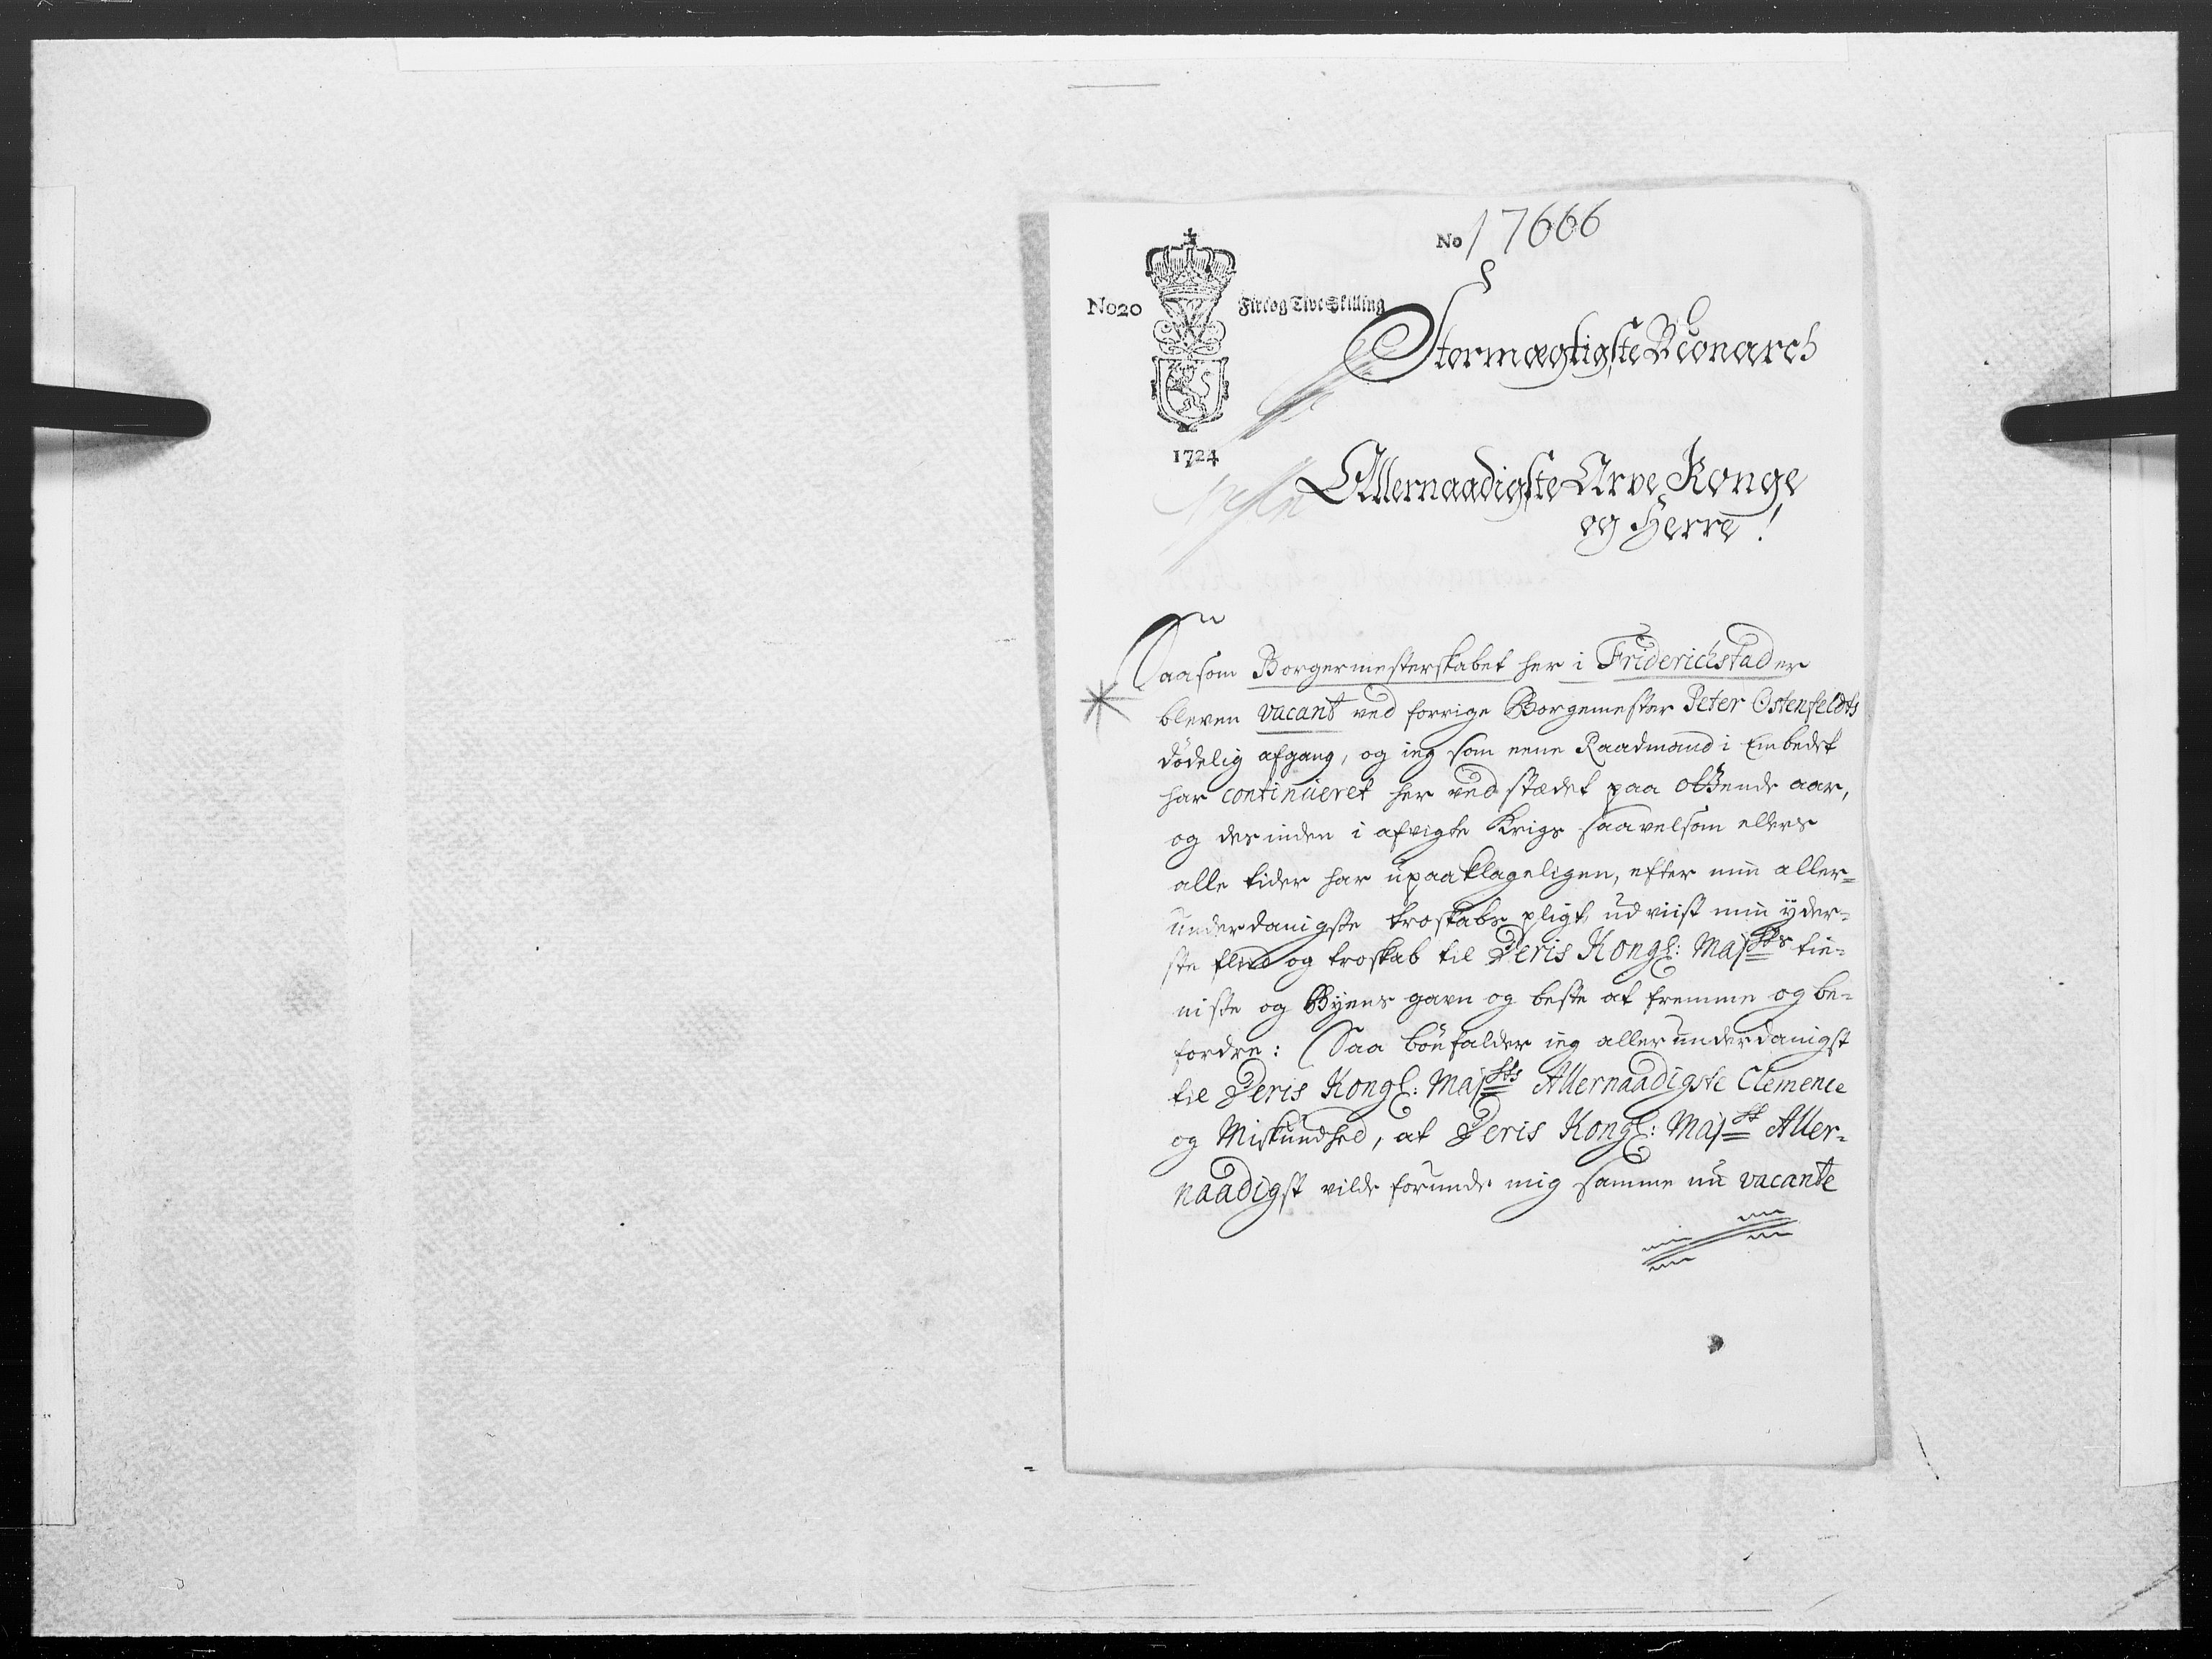 No 17666
No20
Fire og Tive Skilling
Stormægtigste Monarch
1724
Allernaadigste Arve Konge
og Herre!
Saasom Borgermesterskabet her i Friderichstad er
bleven vacant ved forrige Borgemester Peter Ostenfeldts
dødelig afgang, og ieg som eene Raadmand i Embedet
har continueret her ved stædet paa ottende aar,
og des inden i afvigte Krigs saavelsom ellers
alle tider har upaaklageligen, efter min aller=
underdanigste troskabs pligt udviist min yder=
ste fliid og troskab til Deris Kongl: Majsts tie=
niste og Byens gavn og beste at fremme og be=
fordre: Saa bønfalder ieg allerunderdanigst
til Deris Kongl: Majsts Allernaadigste Clemence
og Miskundhed, at Deris Kongl: Majst Aller=
naadigst vilde forunde mig samme nu vacante